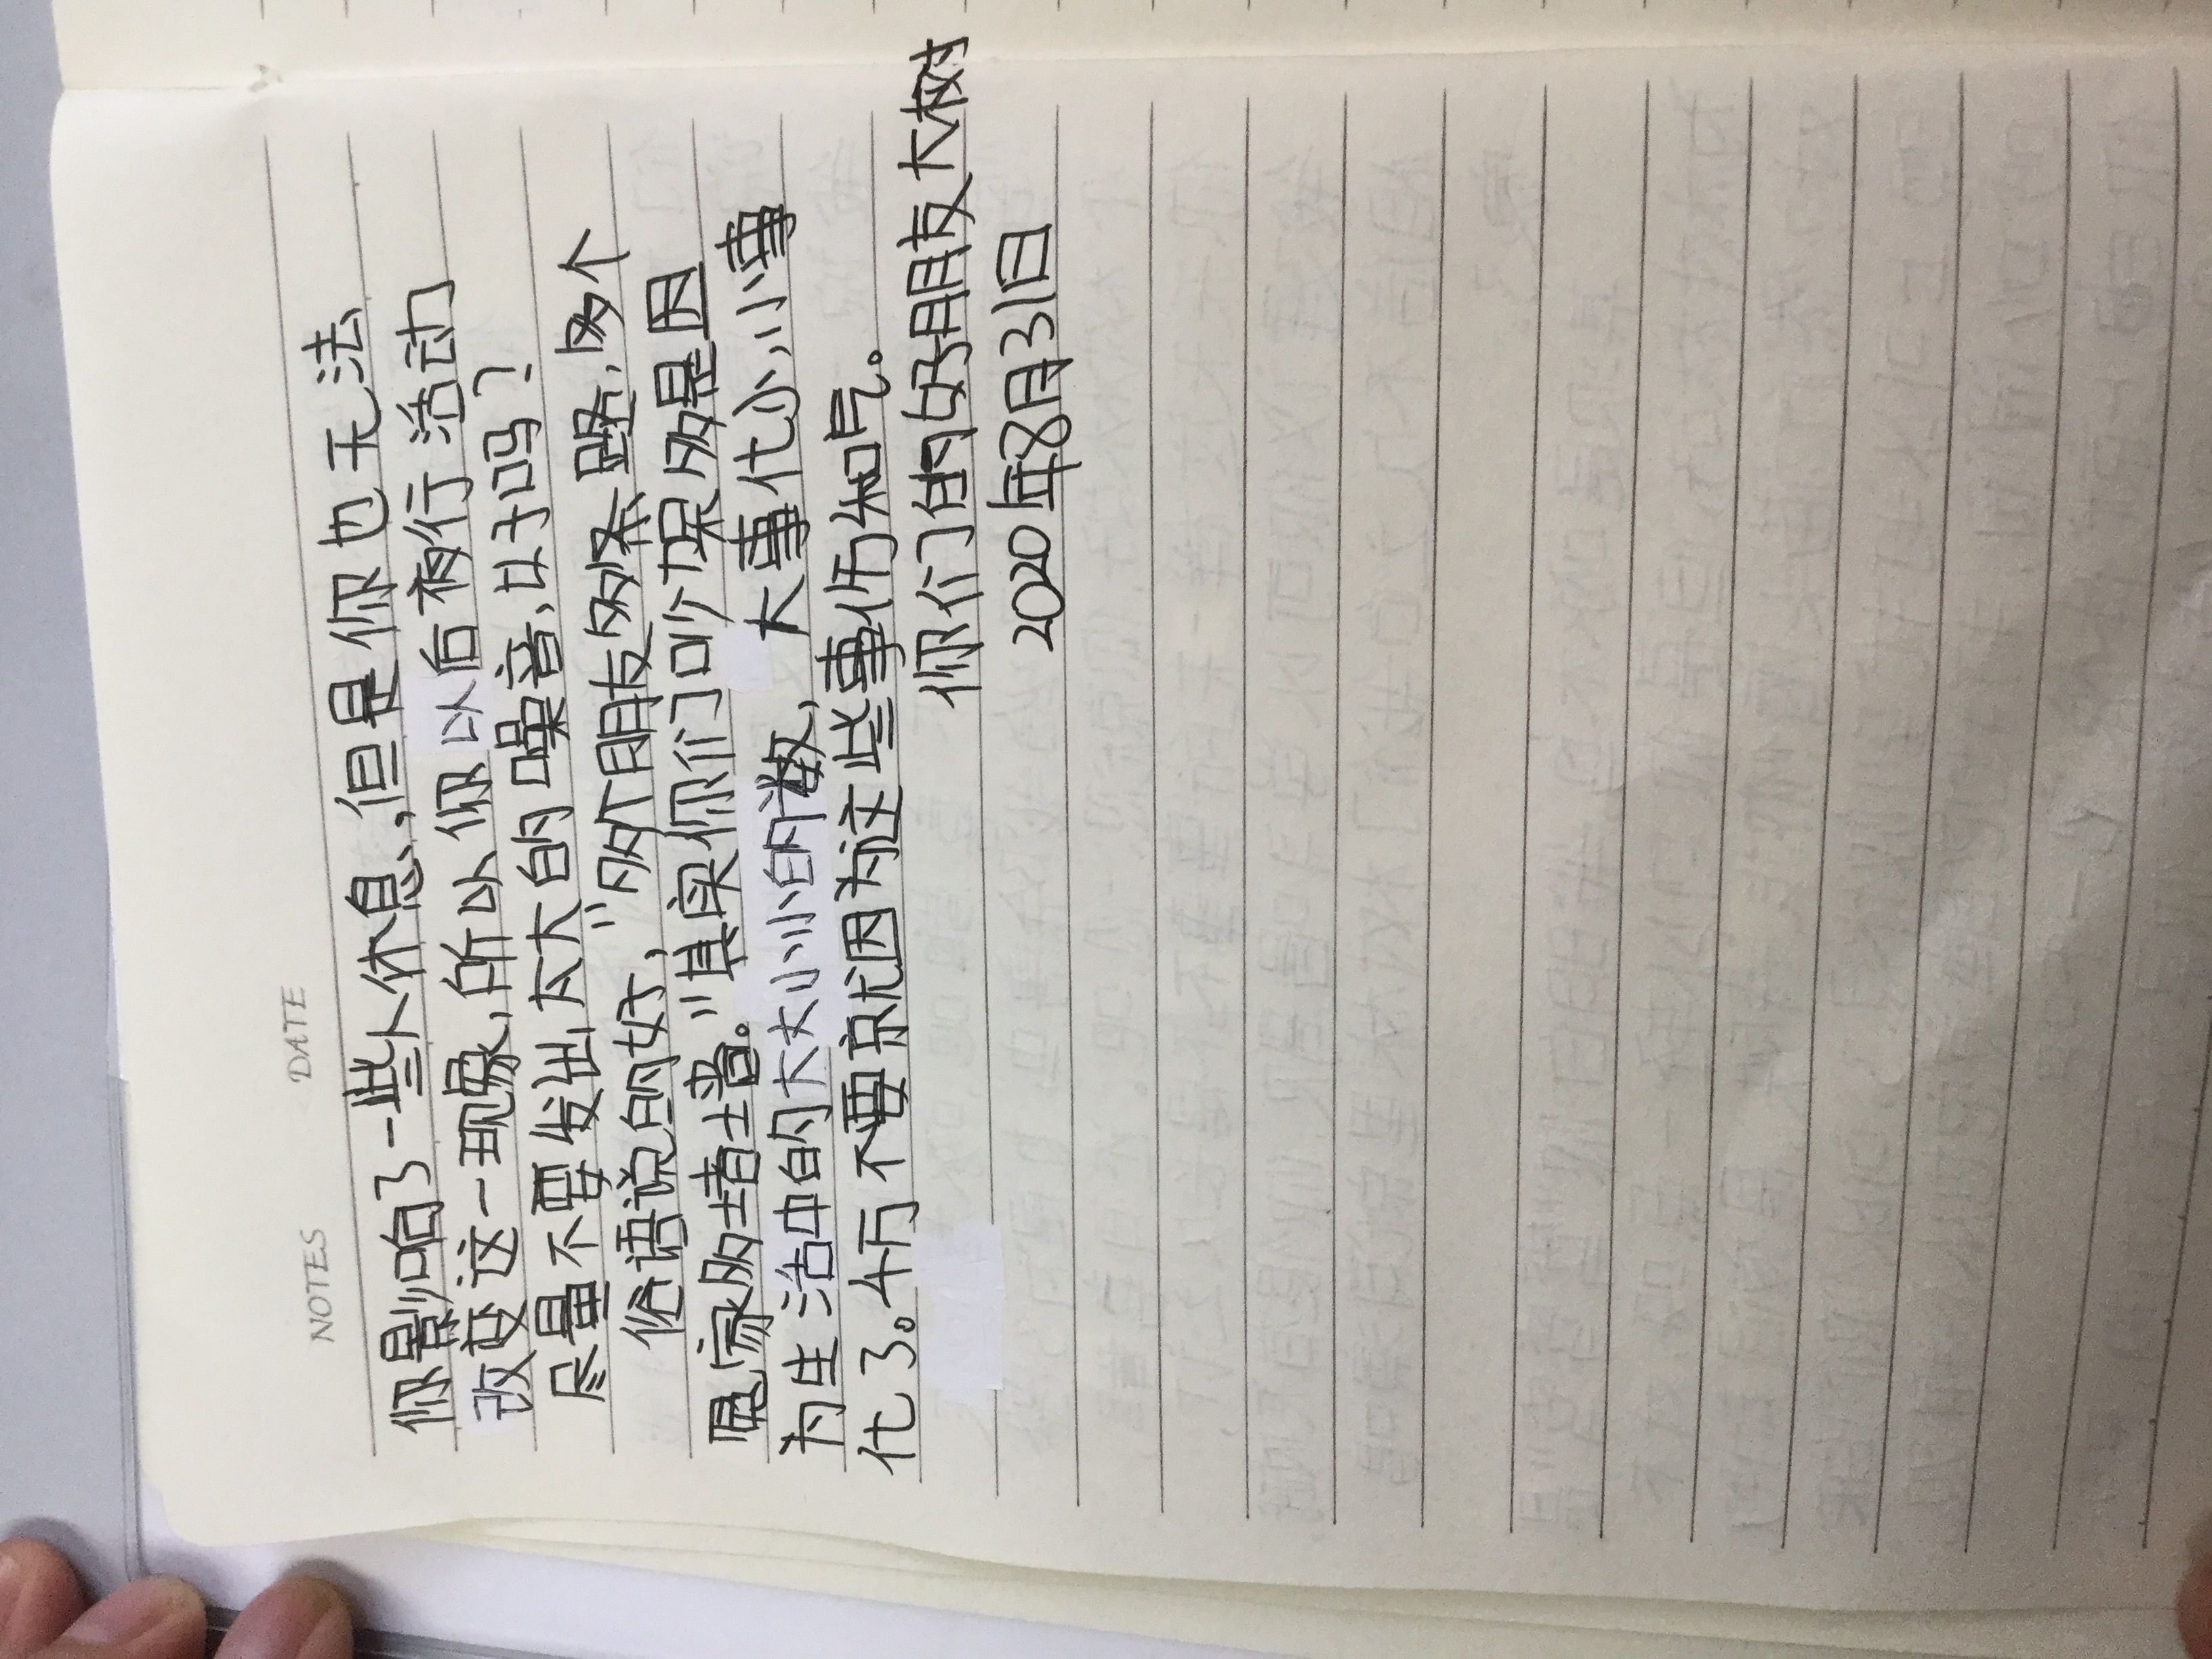 NOTES DATE
你影响了一些人休息,但是你也无法
改变这一现象,所以你以后夜行活动
尽量不要发出太大的噪音,以于吗?
俗语说的好,"多个朋友多条路,多个
冤家多堵墙。"其实你们吵架多是因
为生活中的大大小小的数,大事化小,小事
化了。千万不要京尤因为这些事伤和气。
你们的好朋友大树
2020年8月31日